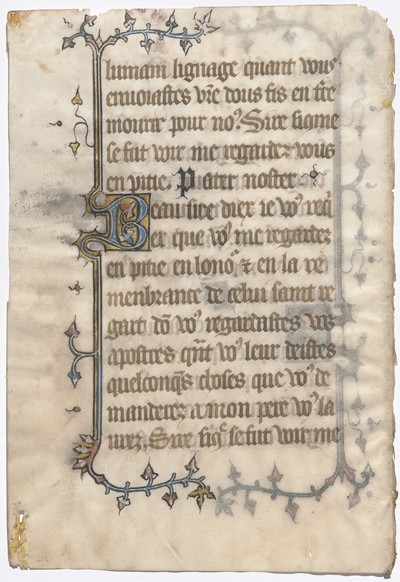 lumain lignage quant vous
enuoiastes vr̄e dous fis en tr̄e
mourir pour noꝰ. Sire si q̄me
se fut voir me regardez vous
en pitie. Pater noster.
Beau sire diex ie voꝰ req̄
er que voꝰ me regardez
en pitie en lonoꝰ & en la re
menbrance de celui saint re
gart dōt voꝰ regardastes vos
apostres qn̄t voꝰ leur deistes
quelconqs̄ choses que voꝰ de
manderez a mon pere voꝰ la
urez. Sire siq̄ se fut voir me